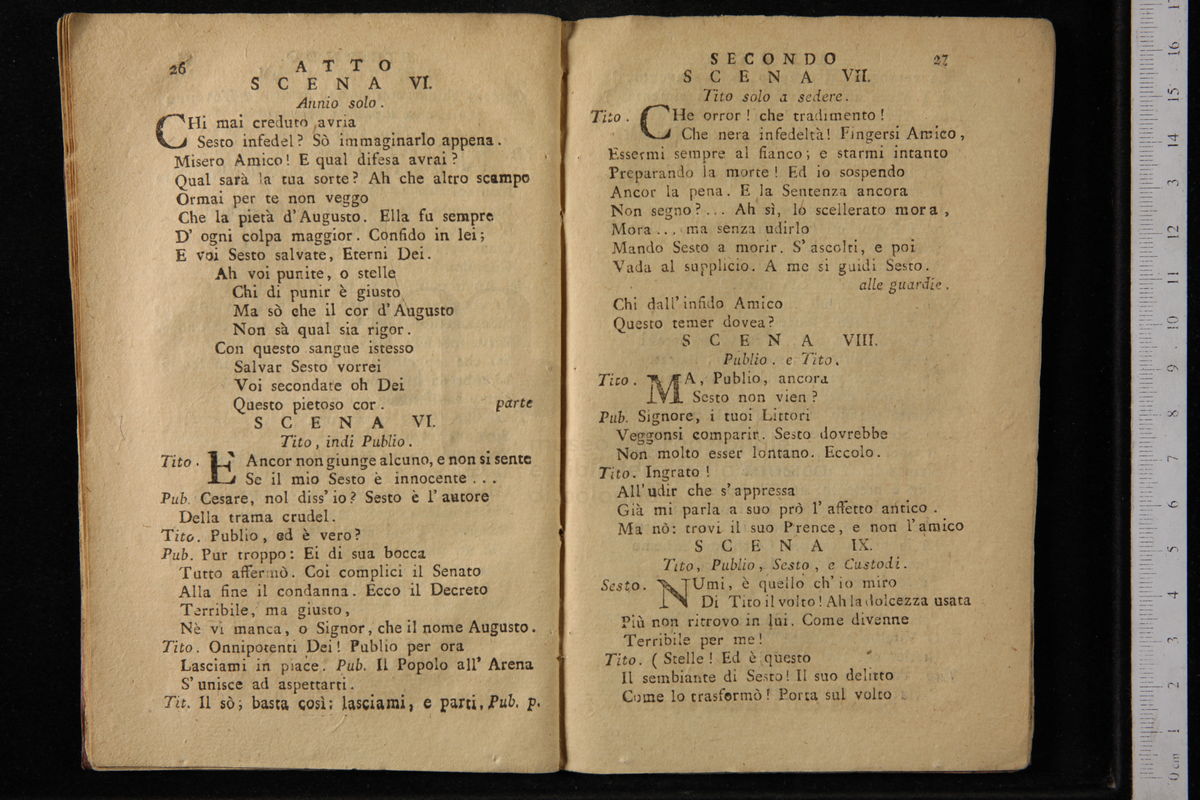 26 ATTO
SCENA VI.
Annio solo.
CHi mai creduto avria
Sesto infedel? Sò immaginarlo appena.
Misero Amico! E qual difesa avrai?
Qual sarà la tua sorte? Ah che altro scampo
Ormai per te non veggo
Che la pietà d'Augusto. Ella fu sempre
D' ogni colpa maggior. Confido in lei;
E voi Sesto salvate, Eterni Dei.
Ah voi punite, o stelle
Chi di punir è giusto
Ma sò che il cor d'Augusto
Non sà qual sia rigor.
Con questo sangue istesso
Salvar Sesto vorrei
Voi secondate oh Dei
Questo pietoso cor. parte
SCENA VI.
Tito, indi Publio.
Tito. E' Ancor non giunge alcuno, e non si sente
Se il mio Sesto è innocente ...
Pub. Cesare, nol diss' io? Sesto è l' autore
Della trama crudel.
Tito. Publio, ed è vero?
Pub. Pur troppo: Ei di sua bocca
Tutto affermò. Coi complici il Senato
Alla fine il condanna. Ecco il Decreto
Terribile, ma giusto,
Nè vi manca, o Signor, che il nome Augusto.
Tito. Onnipotenti Dei! Publio per ora
Lasciami in piace. Pub. Il Popolo all' Arena
S' unisce ad aspettarti.
Tit. Il sò; basta così: lasciami, e parti. Pub. p.
SECONDO 27
SCENA VII.
Tito solo a sedere.
Tito. CHe orror! che tradimento!
Che nera infedeltà! Fingersi Amico,
Essermi sempre al fianco; e starmi intanto
Preparando la morte! Ed io sospendo
Ancor la pena. E la Sentenza ancora
Non segno?... Ah sì, lo scellerato mora,
Mora... ma senza udirlo
Mando Sesto a morir. S' ascolti, e poi
Vada al supplicio. A me si guidi Sesto.
alle guardie.
Chi dall' infido Amico
Questo temer dovea?
SCENA VIII.
Publio. e Tito.
Tito. MA, Publio, ancora
Sesto non vien?
Pub. Signore, i tuoi Littori
Veggonsi comparir. Sesto dovrebbe
Non molto esser lontano. Eccolo.
Tito. Ingrato!
All'udir che s' appressa
Già mi parla a suo prò l' affetto antico.
Ma nò: trovi il suo Prence, e non l'amico
SCENA IX.
Tito, Publio, Sesto, e Custodi.
Sesto. NUmi, è quello ch' io miro
Di Tito il volto! Ah la dolcezza usata
Più non ritrovo in lui. Come divenne
Terribile per me!
Tito. (Stelle! Ed è questo
Il sembiante di Sesto! Il suo delitto
Come lo trasformò! Porta sul volto
0 cm 1 2 3 4 5 6 7 8 9 10 11 12 13 14 15 16 17